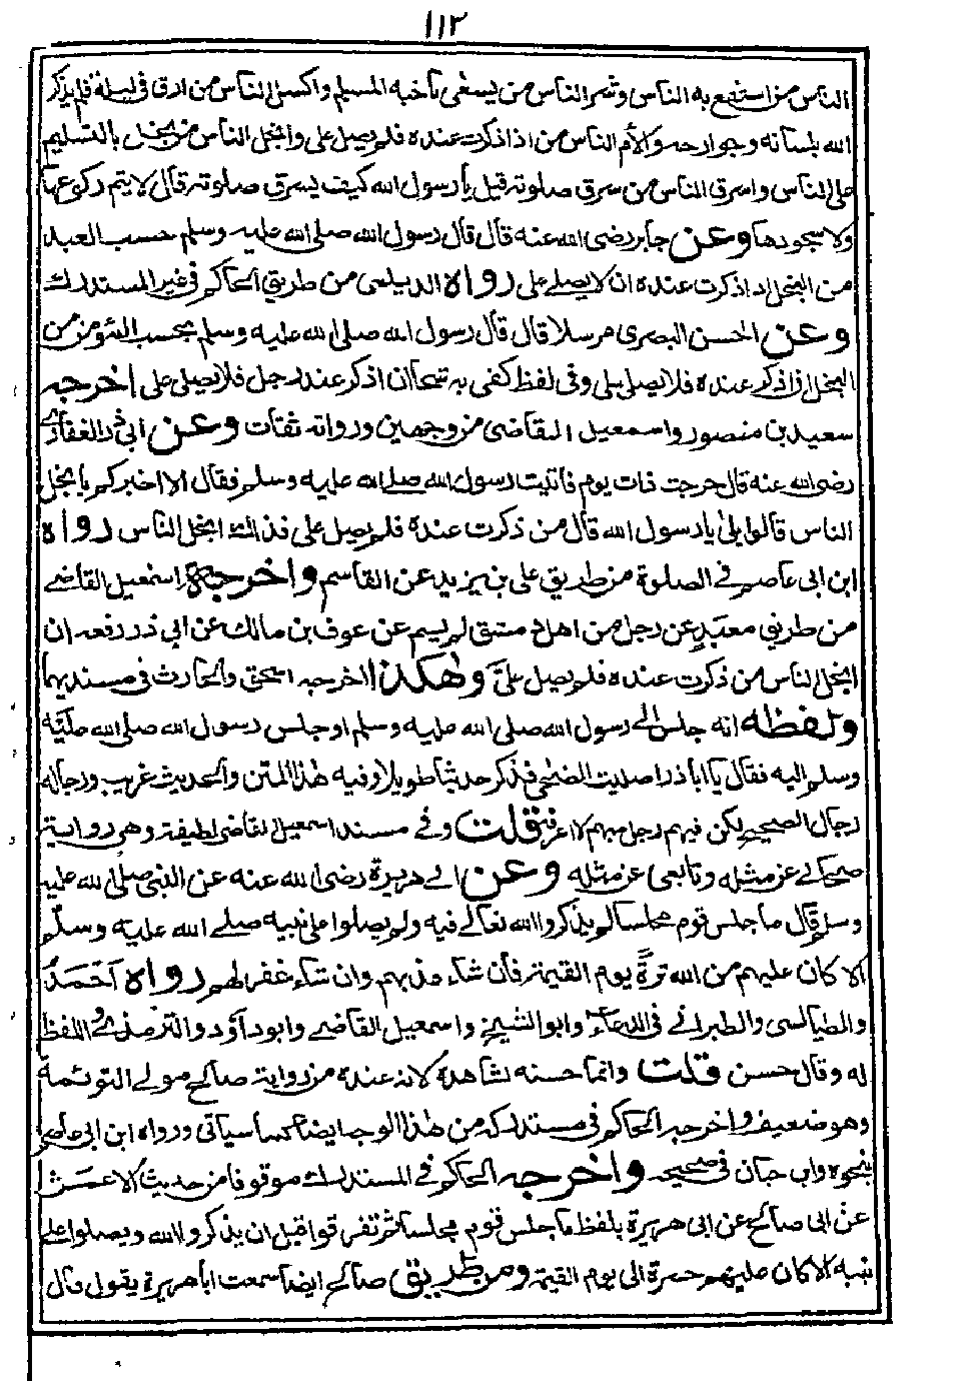 ١١٣
الناس من انتفع به الناس وشر الناس من يسعى باخيه المسلم واكسل الناس من ارق في ليلة فلم يذكر
الله بلسانه وجوارحه والأم الناس من اذا ذكرت عنده فلم يصل على وابخل الناس من بخل بالتسليم
على الناس واسرق الناس من سرق صلوته قيل يا رسول الله كيف يسرق صلوته قال لا يتم ركوعها
ولا سجودها وعن جابر رضى الله عنه قال قال رسول الله صلى الله عليه وسلم حسب العبد
من البخل اذا ذكرت عنده ان لا يصلے على رواه الديلمى من طريق الحاكم في غير المستدرك
وعن الحسن البصرى مرسلا قال قال رسول الله صلى الله عليه وسلم بحسب المؤمن من
البخل اذا ذكر عنده فلا يصلى على وفى لفظ كفى به شحا ان اذكر عند رجل فلا يصلى على اخرجه
سعيد بن منصور واسمعيل القاضى من وجهين ورواته ثقات وعن ابى ذر الغفارے
رضى الله عنه قال خرجت ذات يوم فاتيت رسول الله صلے الله عليه وسلم فقال الا اخبركم بابخل
الناس قالوا بلى يا رسول الله قال من ذكرت عنده فلم يصل على فذالك ابخل الناس رواه
ابن ابى عاصم فے الصلوة من طريق على بن يزيد عن القاسم واخرجه اسمعيل القاضے
من طريق معبد عن رجل من اهل دمشق لم يسم عن عوف بن مالك عن ابي ذر رفعه ان
ابخل الناس من ذكرت عنده فلم يصل علىّ وهكذا اخرجه اسحق والحارث فى مسنديهما
ولفظه انه جلس الى رسول الله صلى الله عليه وسلم او جلس رسول الله صلى الله عليه
وسلم اليه فقال يا ابا ذر اصليت الضحى فذكر حديثا طويلا وفيه هذا المتن والحديث غريب ورجاله
رجال الصحيح لكن فيهم رجل مبهم لا اعرفه قلت وفے مسند اسمعيل القاضى لطيفة وهى رواية
صحابے عن مثله وتابعى عن مثله وعن ابے هريرة رضى الله عنه عن النبى صلى الله عليه
وسلم قال ما جلس قوم مجلسا لم يذكروا الله تعالے فيه ولم يصلوا على نبيه صلے الله عليه وسلم
الا كان عليهم من الله ترة يوم القيمة فان شاء عذبهم وان شاء غفر لهم رواه احمد
والطيالسى والطبرانے فى الدعاء وابو الشيخ واسمعيل القاضے وابو داؤد والترمذى واللفظ
له وقال حسن قلت وانما حسنه لشاهده لانه عنده من رواية صالح مولے التوئمة
وهو ضعيف واخرجه الحاكم فى مستدركه من هذا الوجه ايضا كما سياتى ورواه ابن ابى عاصم
بنحوه وابن حبان فى صحيحه واخرجه الحاكم فے المستدرك موقوفا من حديث الاعمش
عن ابى صالح عن ابى هريرة بلفظ ما جلس قوم مجلسا ثم تفرقوا قبل ان يذكروا الله ويصلوا على
نبيه الا كان عليهم حسرة الى يوم القيمة ومن طريق صالح ايضا سمعت ابا هريرة يقول قال